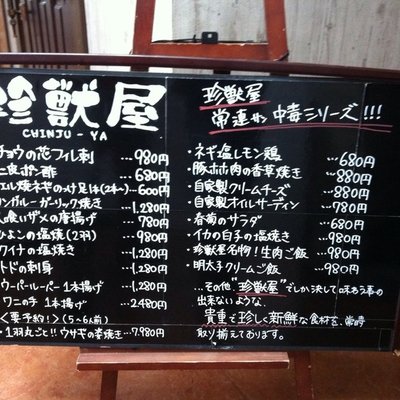 珍獣屋
CHINJU-YA
チョウの花フィレ刺 …980円
皮ポン酢 …680円
エル焼ネギのっけ足は(2本)…600円
ンガルーガーリック焼き …1,280円
喰いザメの唐揚げ …780円
ひよこの塩焼(2羽) …980円
クイナの塩焼き …1,280円
トドの刺身 …1,280円
ウーパールーパー1本揚げ …1,280円
ワニの手 1本揚げ …2,480円
く要予約!〉(5~6人前)
1羽丸ごと!!ウサギの姿焼き…7,980円
珍獣屋
常連サン中毒シリーズ!!!
・ネギ塩レモン鶏 …680円
・豚ホホ肉の香草焼き …880円
・自家製クリームチーズ …880円
・自家製オイルサーディン …780円
・春菊のサラダ …680円
・イカの白子の塩焼き …980円
・珍獣屋名物!生肉ご飯 …980円
・明太子クリームご飯 …980円
…その他"珍獣屋"でしか決して味わう事の
出来ないような、
貴重で珍しく新鮮な食材を、常時
取り揃えております。